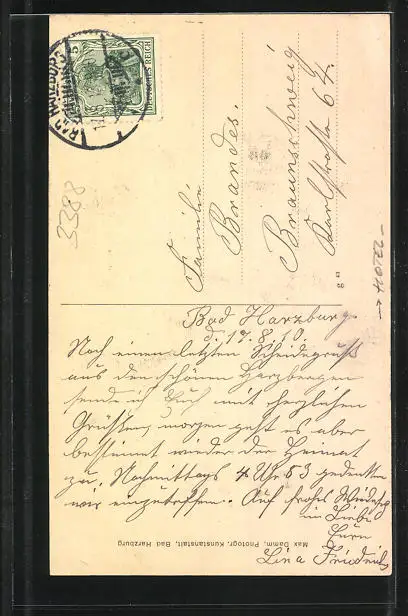 BAD HARZBURG
DEUTSCHES REICH
5
3388
Familie
Brandes.
Braunschweig
Karlstraße 64.
→ HOTEL
Bad Harzburg.
d. 17. 8. 10.
Noch einen letzten Scheidegruß
aus den schönen Harzbergen
sende ich Euch mit herzlichen
Grüssen, morgen geht es aber
bestimmt wieder der Heimat
zu. Nachmittags 4 Uhr 53 gedenken
wir einzutreffen. Auf frohes Wiederseh
in Liebe
Eure
Lina Friedrich
Max Damm, Photogr. Kunstanstalt, Bad Harzburg